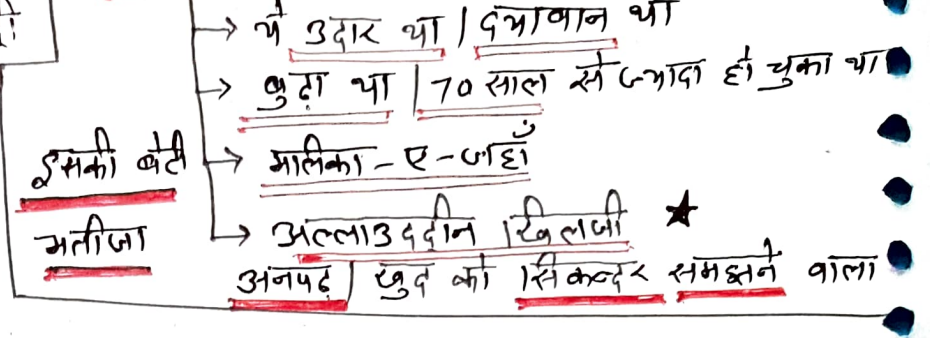 → ये उदार था / दयावान था
→ बुढ़ा था / 70 साल से ज्यादा हो चुका था
इसकी बेटी → मालिका - ए - जहाँ
भतीजा → अल्लाउददीन खिलजी ★
अनपढ़ / खुद को सिकन्दर समझने वाला